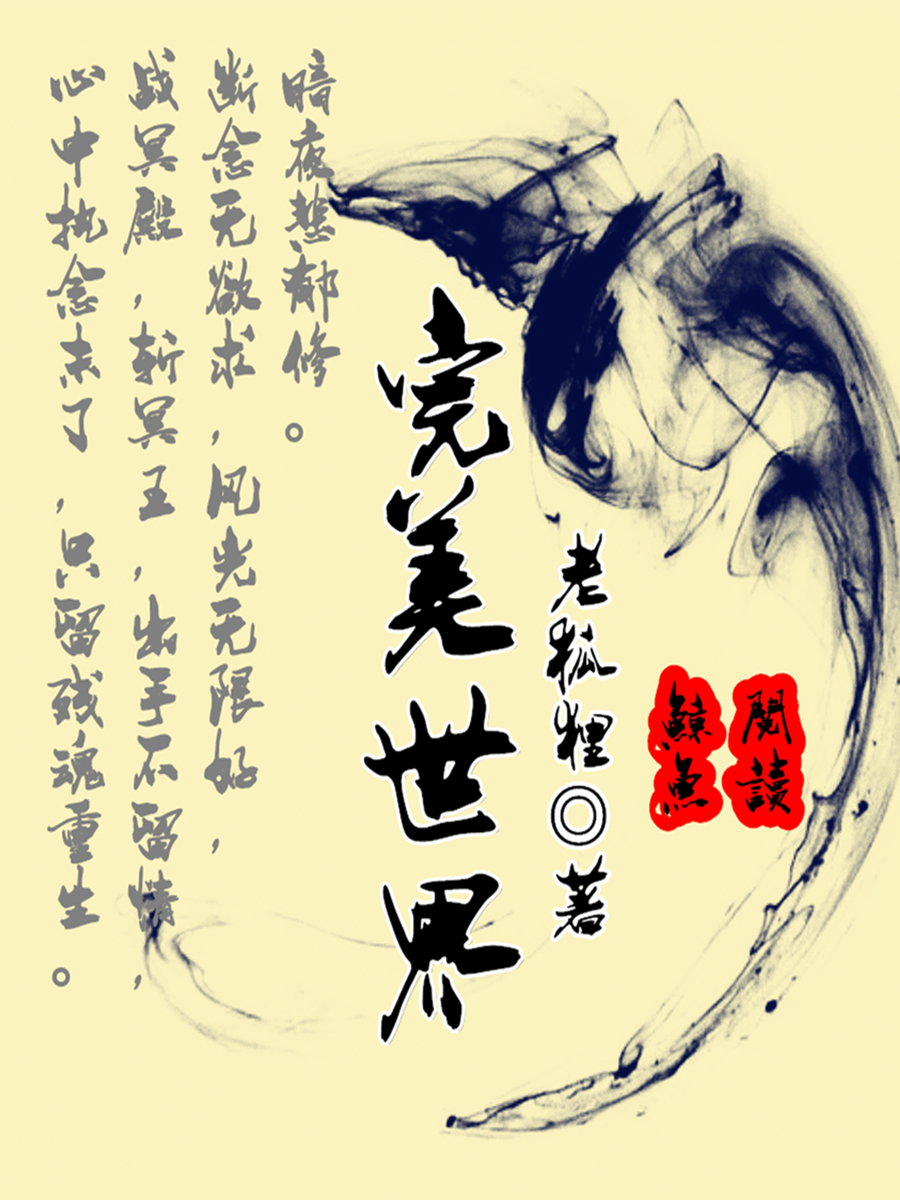 心中执念未了，只留残魂重生。
战冥殿，斩冥王，出手不留情，
断念无欲求，风光无限好，
暗夜悲郁修。
完美世界
老狐狸◎著
鯨魚
閱讀